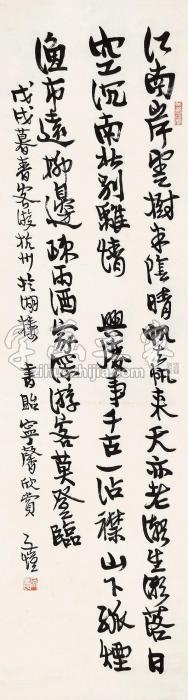 江南岸雲樹半陰晴帆去帆來天亦老潮生潮落日
空沉南北別離情 興廢事千古一沾襟山下孤煙
漁市遠柳邊疎雨酒家深游客莫登臨
戊戌暮春客遊杭州於湖樓 書貽寧馨欣賞 子愷